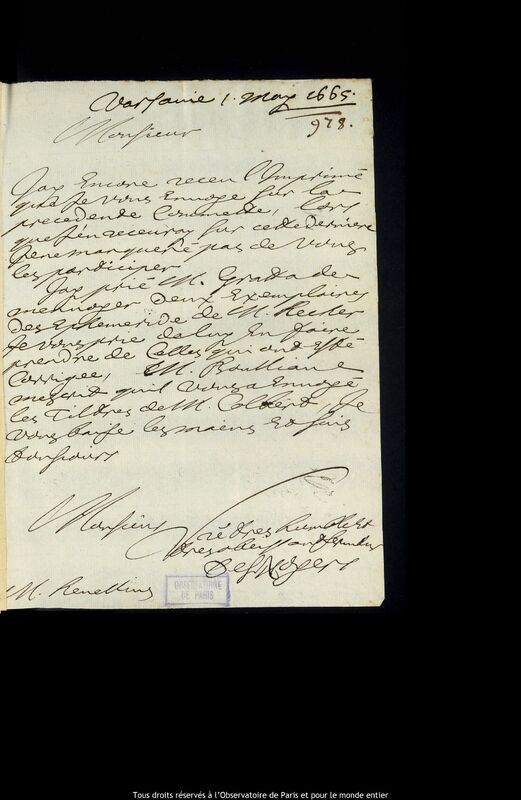 Varsavie 1. may 1665.
978.
Monsieur
Jay Encore receu l'Imprimé
que Je vous Envoye sur la
precedente Commette, lors
que J'en receuray sur cette derniere
Je ne manqueré pas de vous
les participer.
Jay prié M. Gratta de
mennager deux Exemplaires
des Ephemeride de M. Hecker
Je vous prie de luy En faire
prendre de Celles qui ont esté
Corrigée, M. Boulliau
mescrit quil vous a Envoyé
les Tiltres de M. Colbert, Je
vous baise les mains Et suis
tousjours
Monsieur
Vre tres humble et
tres obeissant serviteur
Des Noyers
M. Hevellius
OBSERVATOIRE
DE PARIS
Tous droits réservés à l'Observatoire de Paris et pour le monde entier